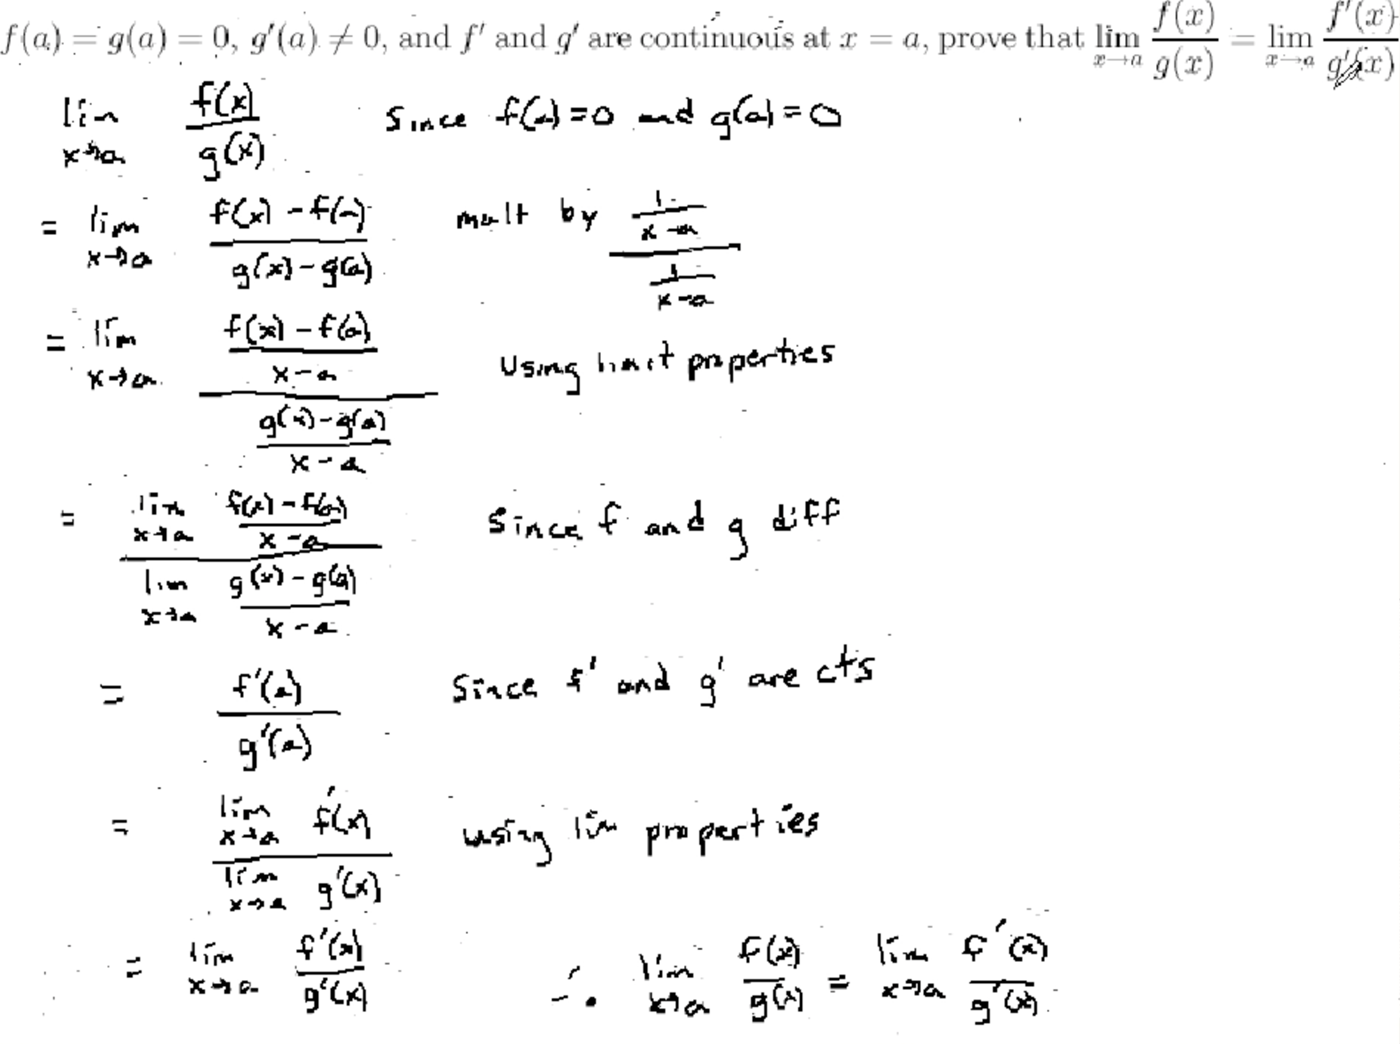 f(a) = g(a) = 0, g'(a) ≠ 0, and f' and g' are continuous at x = a, prove that lim x→a f(x)/g(x) = lim x→a f'(x)/g'(x)
lim x→a f(x)/g(x) Since f(a)=0 and g(a)=0
= lim x→a (f(x) - f(a))/(g(x) - g(a)) mult by (1/(x-a))/(1/(x-a))
= lim x→a ((f(x) - f(a))/(x-a))/((g(x) - g(a))/(x-a)) Using limit properties
= (lim x→a (f(x) - f(a))/(x-a))/(lim x→a (g(x) - g(a))/(x-a)) Since f and g diff
= f'(a)/g'(a) Since f' and g' are cts
= (lim x→a f'(x))/(lim x→a g'(x)) using lim properties
= lim x→a f'(x)/g'(x) ∴ lim x→a f(x)/g(x) = lim x→a f'(x)/g'(x)